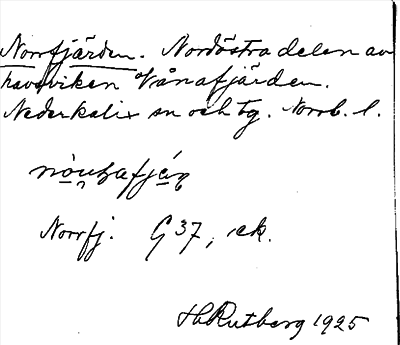 Norrfjärden. Nordöstra delen av
havsviken Vånafjärden.
Nederkalix sn och tg. Norrb. l.
Norrfj. G 37, ek.
H Rutberg 1925